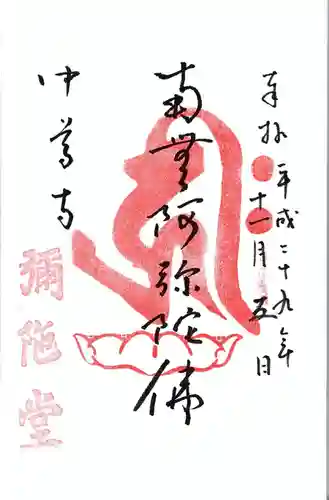 奉拝 平成二十九年
十一月五日
南無阿弥陀佛
中尊寺
彌陀堂